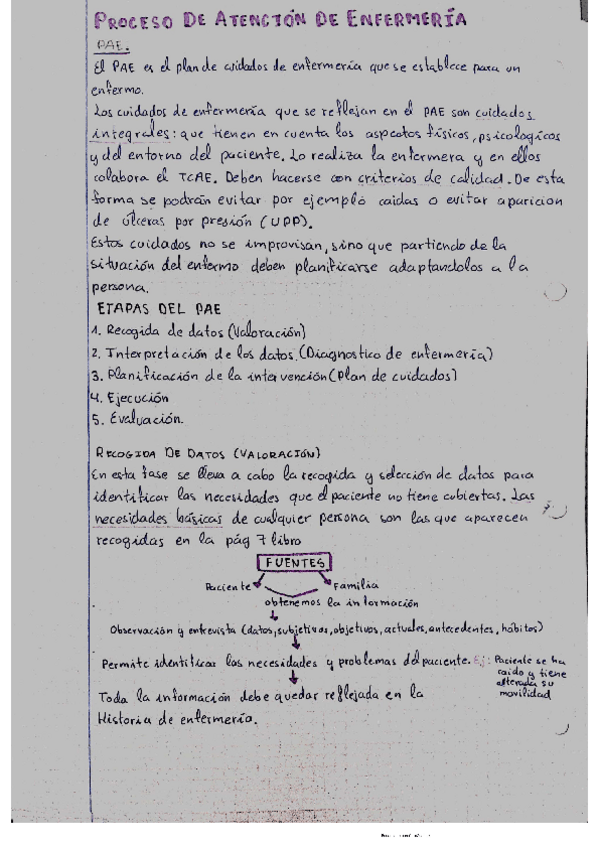 PROCESO DE ATENCIÓN DE ENFERMERÍA
PAE.
El PAE es el plan de cuidados de enfermería que se establece para un
enfermo.
Los cuidados de enfermería que se reflejan en el PAE son cuidados
integrales: que tienen en cuenta los aspectos físicos, psicologicos
y del entorno del paciente. Lo realiza la enfermera y en ellos
colabora el TCAE. Deben hacerse con criterios de calidad. De esta
forma se podrán evitar por ejemplo caidas o evitar aparicion
de úlceras por presión (UPP).
Estos cuidados no se improvisan, sino que partiendo de la
situación del enfermo deben planificarse adaptandolos a la
persona.
ETAPAS DEL PAE
1. Recogida de datos (Valoración)
2. Interpretación de los datos. (Diagnostico de enfermería)
3. Planificación de la intervención (Plan de cuidados)
4. Ejecución
5. Evaluación.
RECOGIDA DE DATOS (VALORACIÓN)
En esta fase se lleva a cabo la recogida y selección de datos para
identificar las necesidades que el paciente no tiene cubiertas. Las
necesidades básicas de cualquier persona son las que aparecen
recogidas en la pág 7 libro
FUENTES
Paciente Familia
obtenemos la información
Observación y entrevista (datos, subjetivos, objetivos, actuales, antecedentes, hábitos)
Permite identificar las necesidades y problemas del paciente. Ej: Paciente se ha
caido y tiene
alterada su
movilidad
Toda la información debe quedar reflejada en la
Historia de enfermería.